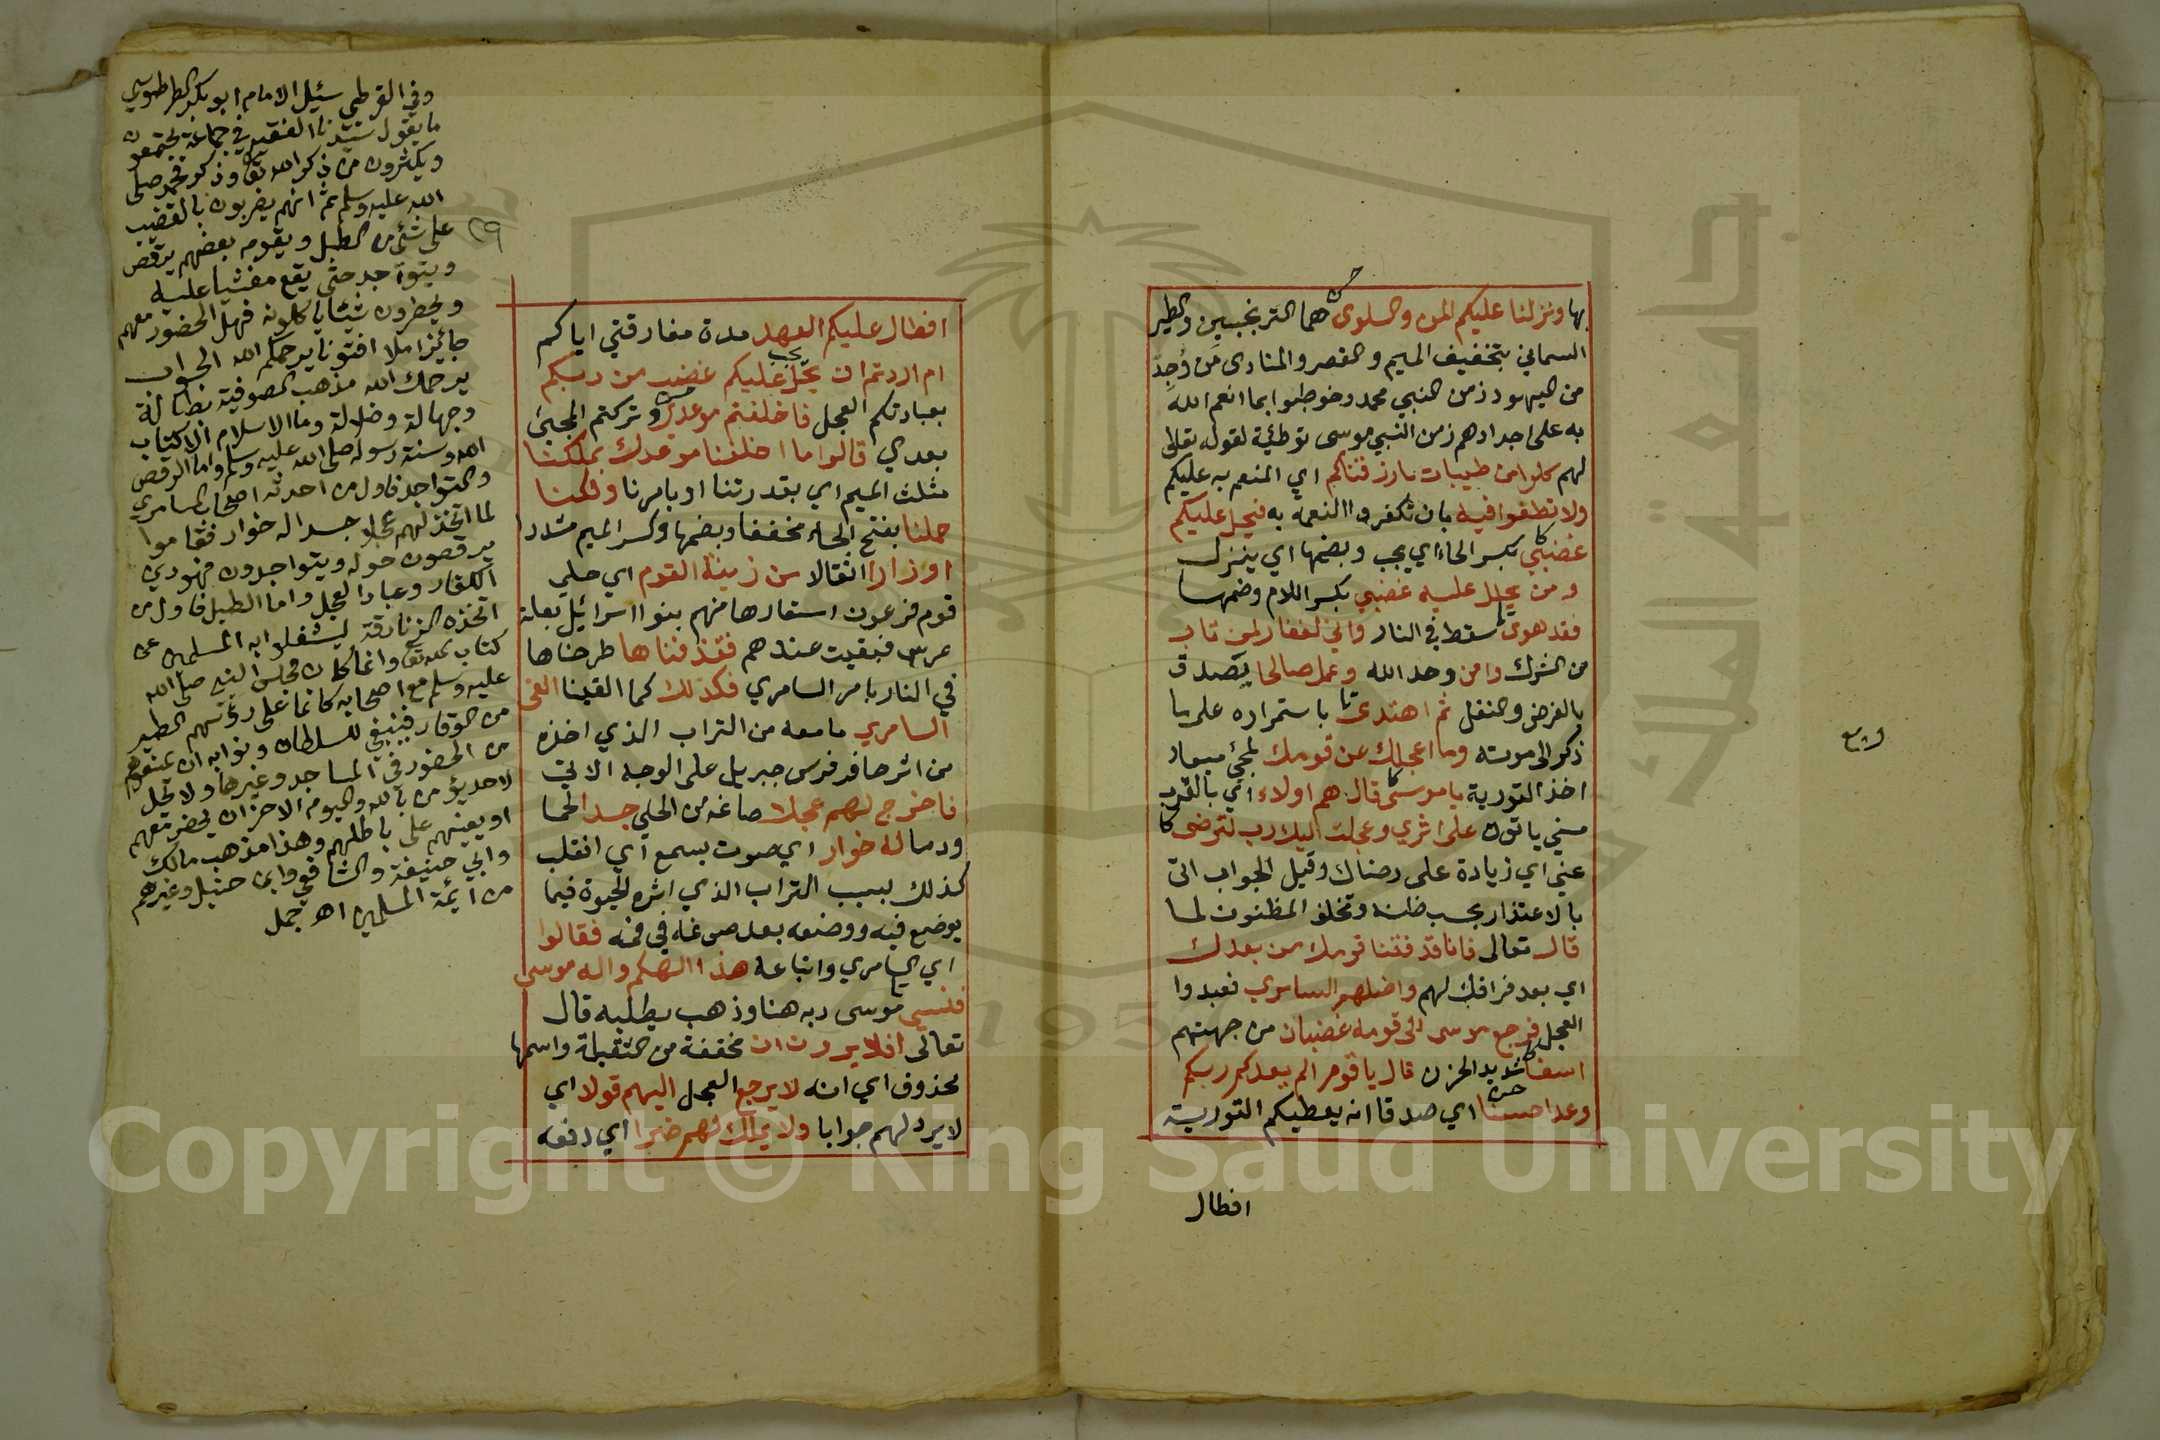 بها ونزلنا عليكم المن والسلوى هما الترنجبين والطير
السماني بتخفيف الميم والقصر والمنادى من وجد
من اليهود زمن النبي محمد وخوطبوا بما انعم الله
به على اجدادهم زمن النبي موسى توطئية لقوله تعالى
لهم كلوا من طيبات ما رزقناكم اي المنعم به عليكم
ولا تطغوا فيه بان تكفروا النعمة به فيحل عليكم
غضبي بكسر الحاء اي يجب وبضمها اي ينزل
ومن يحلل عليه غضبي بكسر اللام وضمها
فقد هوى سقط في النار واني لغفار لمن تاب
من الشرك وامن وحد الله وعمل صالحا يصدق
بالفرض والنفل ثم اهتدى باستمراره على ما
ذكر الى موته وما اعجلك عن قومك لمجئ ميعاد
اخذ التورية يا موسى قال هم اولاء اي بالقرب
مني ياتون على اثري وعجلت اليك رب لترضى
عني اي زيادة على رضاك وقيل الجواب اتى
بالاعتذار بحسب ظنه وتخلف المظنون لما
قال تعالى فانا قد فتنا قومك من بعدك
اي بعد فراقك لهم واضلهم السامري فعبدوا
العجل فرجع موسى الى قومه غضبان من جهتهم
اسفا شديد الحزن قال يا قوم الم يعدكم ربكم
وعدا حسنا اي صدقا انه يعطيكم التورية
افطال
ربع
٢٩
افطال عليكم العهد مدة مفارقتي اياكم
ام اردتم ان يحل عليكم غضب من ربكم
بعبادتكم العجل فاخلفتم موعدي وتركتم المجئ
بعدي قالوا ما اخلفنا موعدك بملكنا
مثلث الميم اي بقدرتنا او بامرنا ولكنا
حملنا بفتح الحاء مخففا وبضمها وكسر الميم مشددا
اوزارا اثقالا من زينة القوم اي حلي
قوم فرعون استعارها منهم بنوا اسرائيل بعلة
عرس فبقيت عندهم فقذفناها طرحناها
في النار بامر السامري فكذلك كما القينا القى
السامري ما معه من التراب الذي اخذه
من اثر حافر فرس جبريل على الوجه الاتي
فاخرج لهم عجلا صاغه من الحلي جسدا لحما
ودما له خوار اي صوت يسمع اي انقلب
كذلك بسبب التراب الذي اثره الحيوة فيما
يوضع فيه ووضعه بعد صوغه في فمه فقالوا
اي السامري واتباعه هذا الهكم واله موسى
فنسي موسى ربه هنا وذهب يطلبه قال
تعالى افلا يرون ان مخففة من الثقيلة واسمها
محذوف اي انه لا يرجع العجل اليهم قولا اي
لا يرد لهم جوابا ولا يملك لهم ضرا اي دفعه
وفي القرطبي سئيل الامام ابو بكر الطرطوسي
ما يقول سيدنا الفقيه في جماعة يجتمعون
ويكثرون من ذكر الله تعا وذكر محمد صلى
الله عليه وسلم ثم انهم يضربون بالقضيب
على شئ من الطبل ويقوم بعضهم يرقص
ويتواجد حتى يقع مغشيا عليه
ويحضرون شيئا ياكلونه فهل الحضور معهم
جائز ام لا افتونا يرحمكم الله الجواب
يرحمك الله مذهب الصوفية بطالة
وجهالة وضلالة وما الاسلام الا كتاب
الله وسنة رسوله صلى الله عليه وسلم واما الرقص
والتواجد فاول من احدثه اصحاب السامري
لما اتخذ لهم عجلا جسدا له خوار فقاموا
يرقصون حوله ويتواجدون فهو دين
الكفار وعباد العجل واما الطبل فاول من
اتخذه الزنادقة ليشغلوا به المسلمين عن
كتاب الله تعا وانما كان مجلس النبي صلى الله
عليه وسلم مع اصحابه كانما على رؤسهم الطير
من الوقار فينبغي للسلطان ونوابه ان يمنعوهم
من الحضور في المساجد وغيرها ولا يحل
لاحد يؤمن بالله واليوم الاخر ان يحضر معهم
او يعينهم على باطلهم وهذا مذهب مالك
وابي حنيفة والشافعي وابن حنبل وغيرهم
من ايمة المسلمين اهـ جمل
جامعة الملك
1957
Copyright © King Saud University